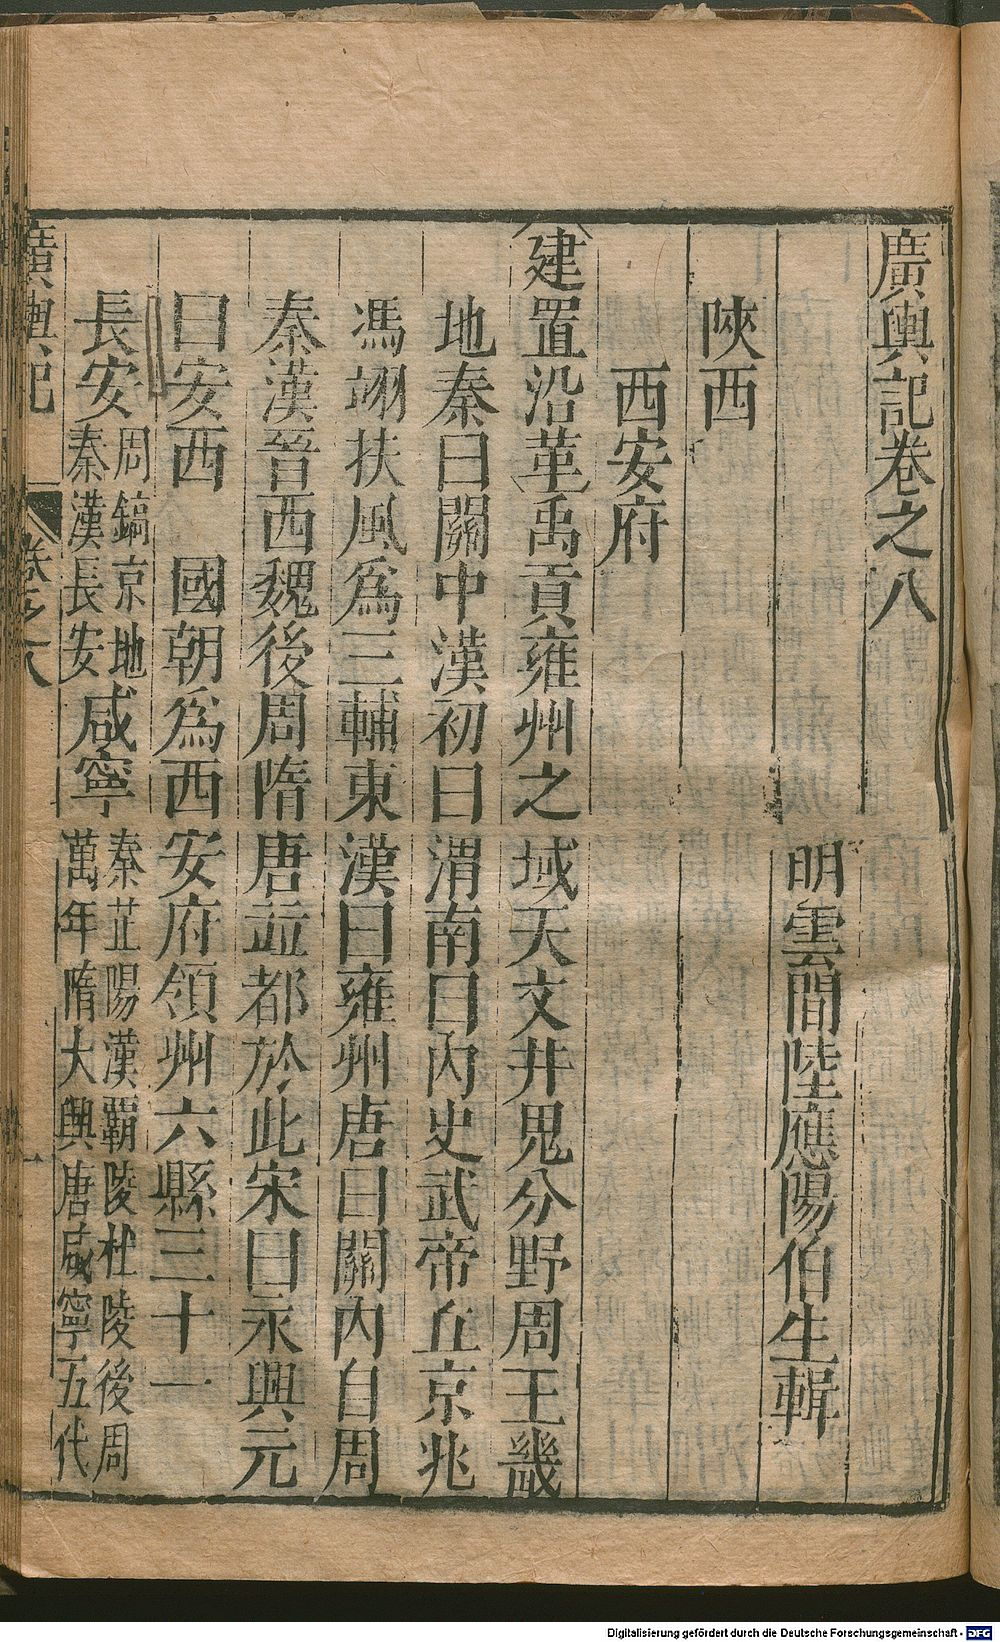 廣輿記卷之八
明雲間陸應陽伯生輯
陝西
西安府
建置沿革禹貢雍州之域天文井鬼分野周王畿
地秦曰關中漢初曰渭南曰內史武帝丘京兆
馮翊扶風為三輔東漢曰雍州唐曰關內自周
秦漢晉西魏後周隋唐竝都於此宋曰永興元
曰安西 國朝為西安府領州六縣三十一
長安周鎬京地秦漢長安咸寧秦芷陽漢霸陵杜陵後周萬年隋大興唐咸寧五代
廣輿記 卷之八 一
Digitalisierung gefördert durch die Deutsche Forschungsgemeinschaft - DFG